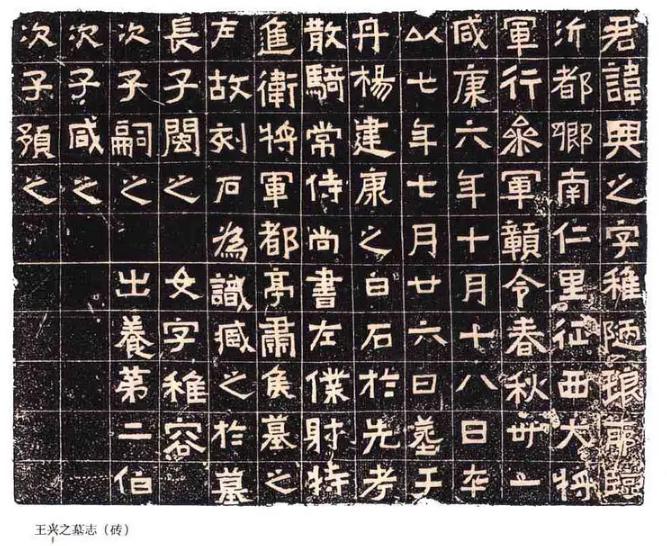 君諱興之字稚陋琅耶臨
沂都鄉南仁里征西大將
軍行參軍贛令春秋卅一
咸康六年十月十八日卒
以七年七月廿六日葬于
丹楊建康之白石於先考
散騎常侍尚書左僕射特
進衛將軍都亭肅侯墓之
左故刻石為識臧之於墓
長子閩之女字稚容
次子嗣之出養第二伯
次子咸之
次子預之
王兴之墓志（砖）